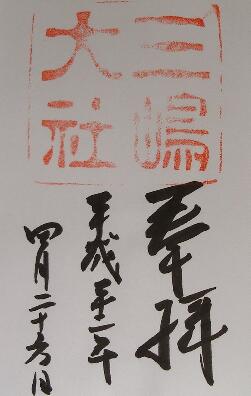 三嶋
大社
奉拝
平成二十二年
四月二十六日